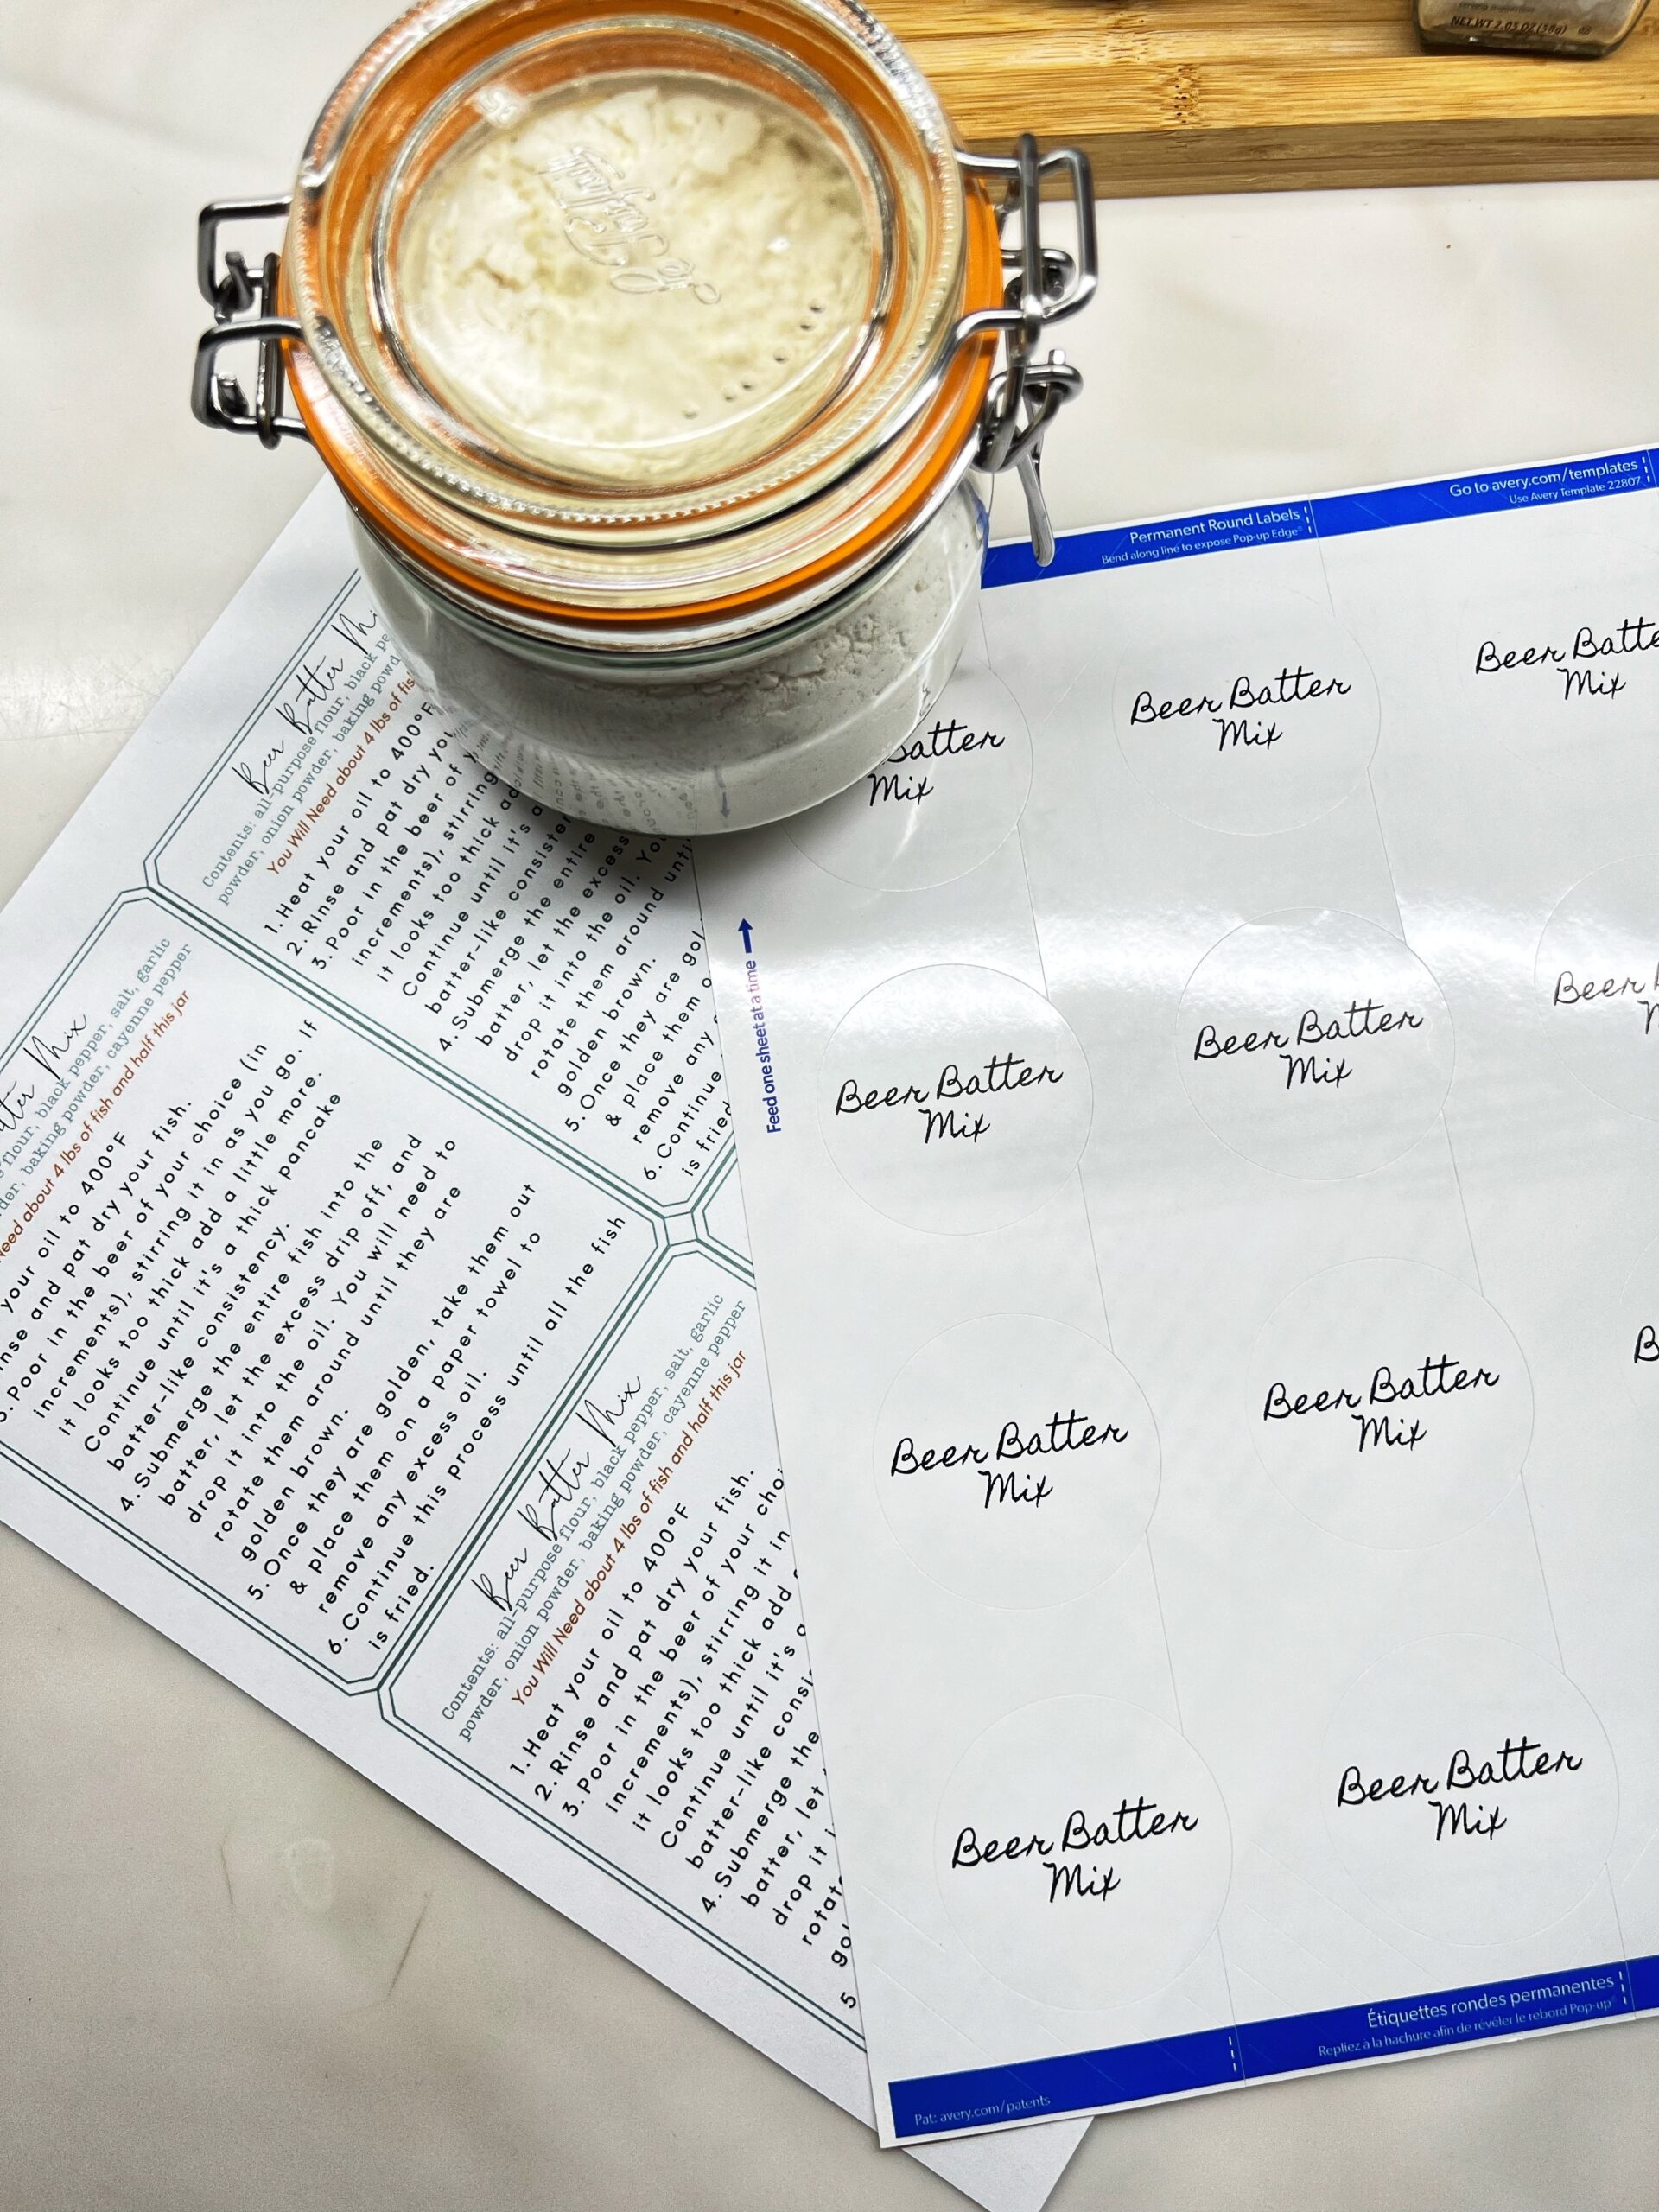 NET WT 2.05 OZ (58g)
Le Parfait
Beer Batter Mi
Contents: all-purpose flour, black pe
powder, onion powder, baking powd
You Will Need about 4 lbs of fis
1. Heat your oil to 400°F
2. Rinse and pat dry you
3. Poor in the beer of y
increments), stirring
it looks too thick ad
Continue until it's a
batter-like consisten
4. Submerge the entire
batter, let the excess
drop it into the oil. You
rotate them around until
golden brown.
5. Once they are gol
& place them o
remove any
6. Continue
is fried
tter Mix
flour, black pepper, salt, garlic
der, baking powder, cayenne pepper
Need about 4 lbs of fish and half this jar
your oil to 400°F
nse and pat dry your fish.
3. Poor in the beer of your choice (in
increments), stirring it in as you go. If
it looks too thick add a little more.
Continue until it's a thick pancake
batter-like consistency.
4. Submerge the entire fish into the
batter, let the excess drip off, and
drop it into the oil. You will need to
rotate them around until they are
golden brown.
5. Once they are golden, take them out
& place them on a paper towel to
remove any excess oil.
6. Continue this process until all the fish
is fried.
Beer Batter Mix
Contents: all-purpose flour, black pepper, salt, garlic
powder, onion powder, baking powder, cayenne pepper
You Will Need about 4 lbs of fish and half this jar
1. Heat your oil to 400°F
2. Rinse and pat dry your fish.
3. Poor in the beer of your choi
increments), stirring it in
it looks too thick add
Continue until it's a
batter-like consi
4. Submerge the
batter, let
drop it i
rotat
go
5
Permanent Round Labels
Bend along line to expose Pop-up Edge®
Go to avery.com/templates
Use Avery Template 22807
Batter
Mix
Beer Batter
Mix
Beer Batte
Mix
Feed one sheet at a time
Beer Batter
Mix
Beer Batter
Mix
Beer B
M
Beer Batter
Mix
Beer Batter
Mix
B
Beer Batter
Mix
Beer Batter
Mix
Étiquettes rondes permanentes
Repliez à la hachure afin de révéler le rebord Pop-up®
Pat: avery.com/patents